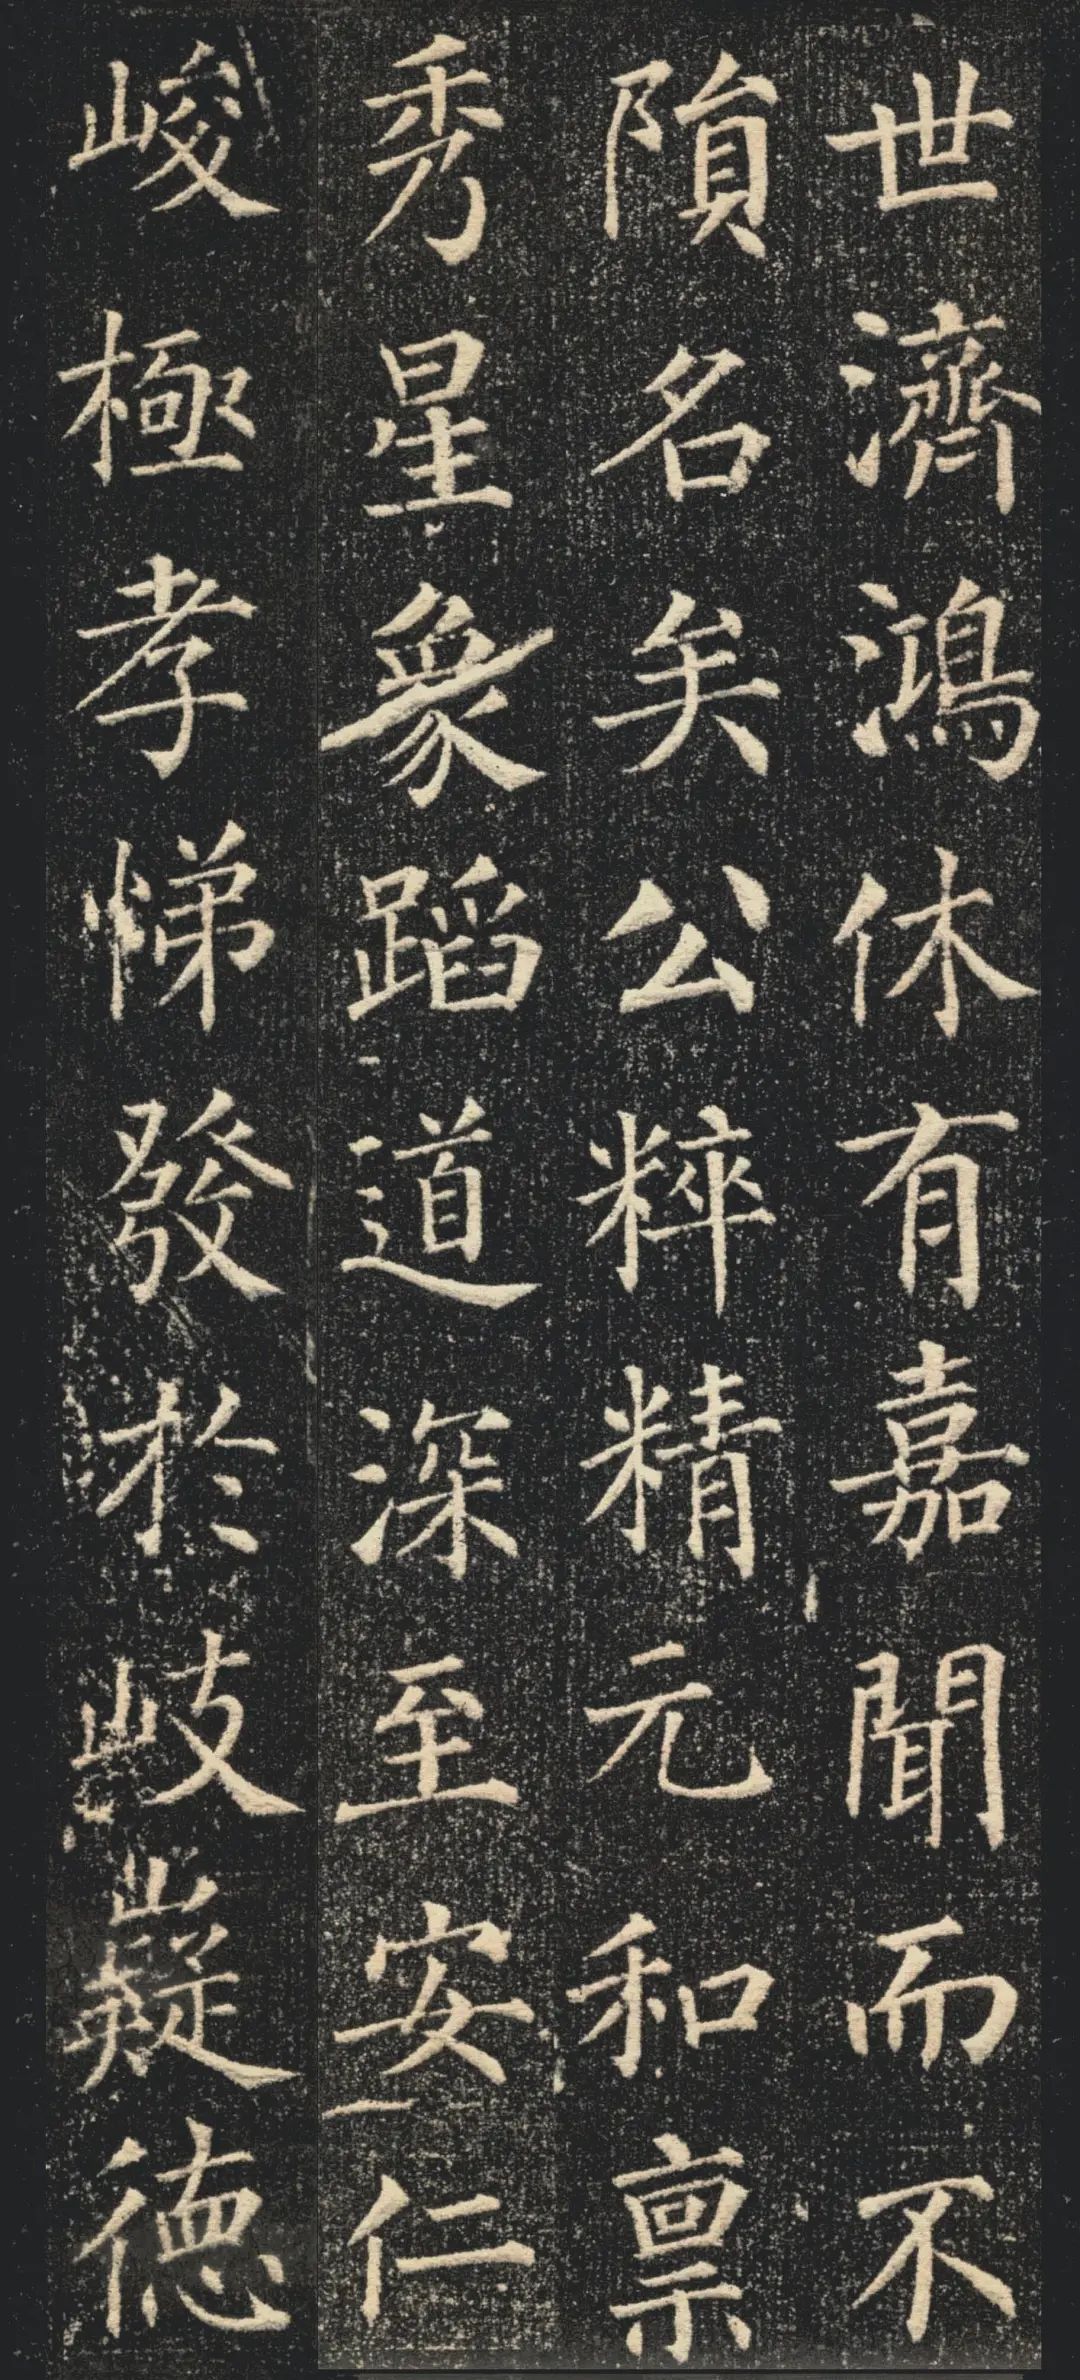 世濟鴻休有嘉聞而不
隕名矣公粹精元和禀
秀星象蹈道深至安仁
峻極孝悌發於岐嶷德